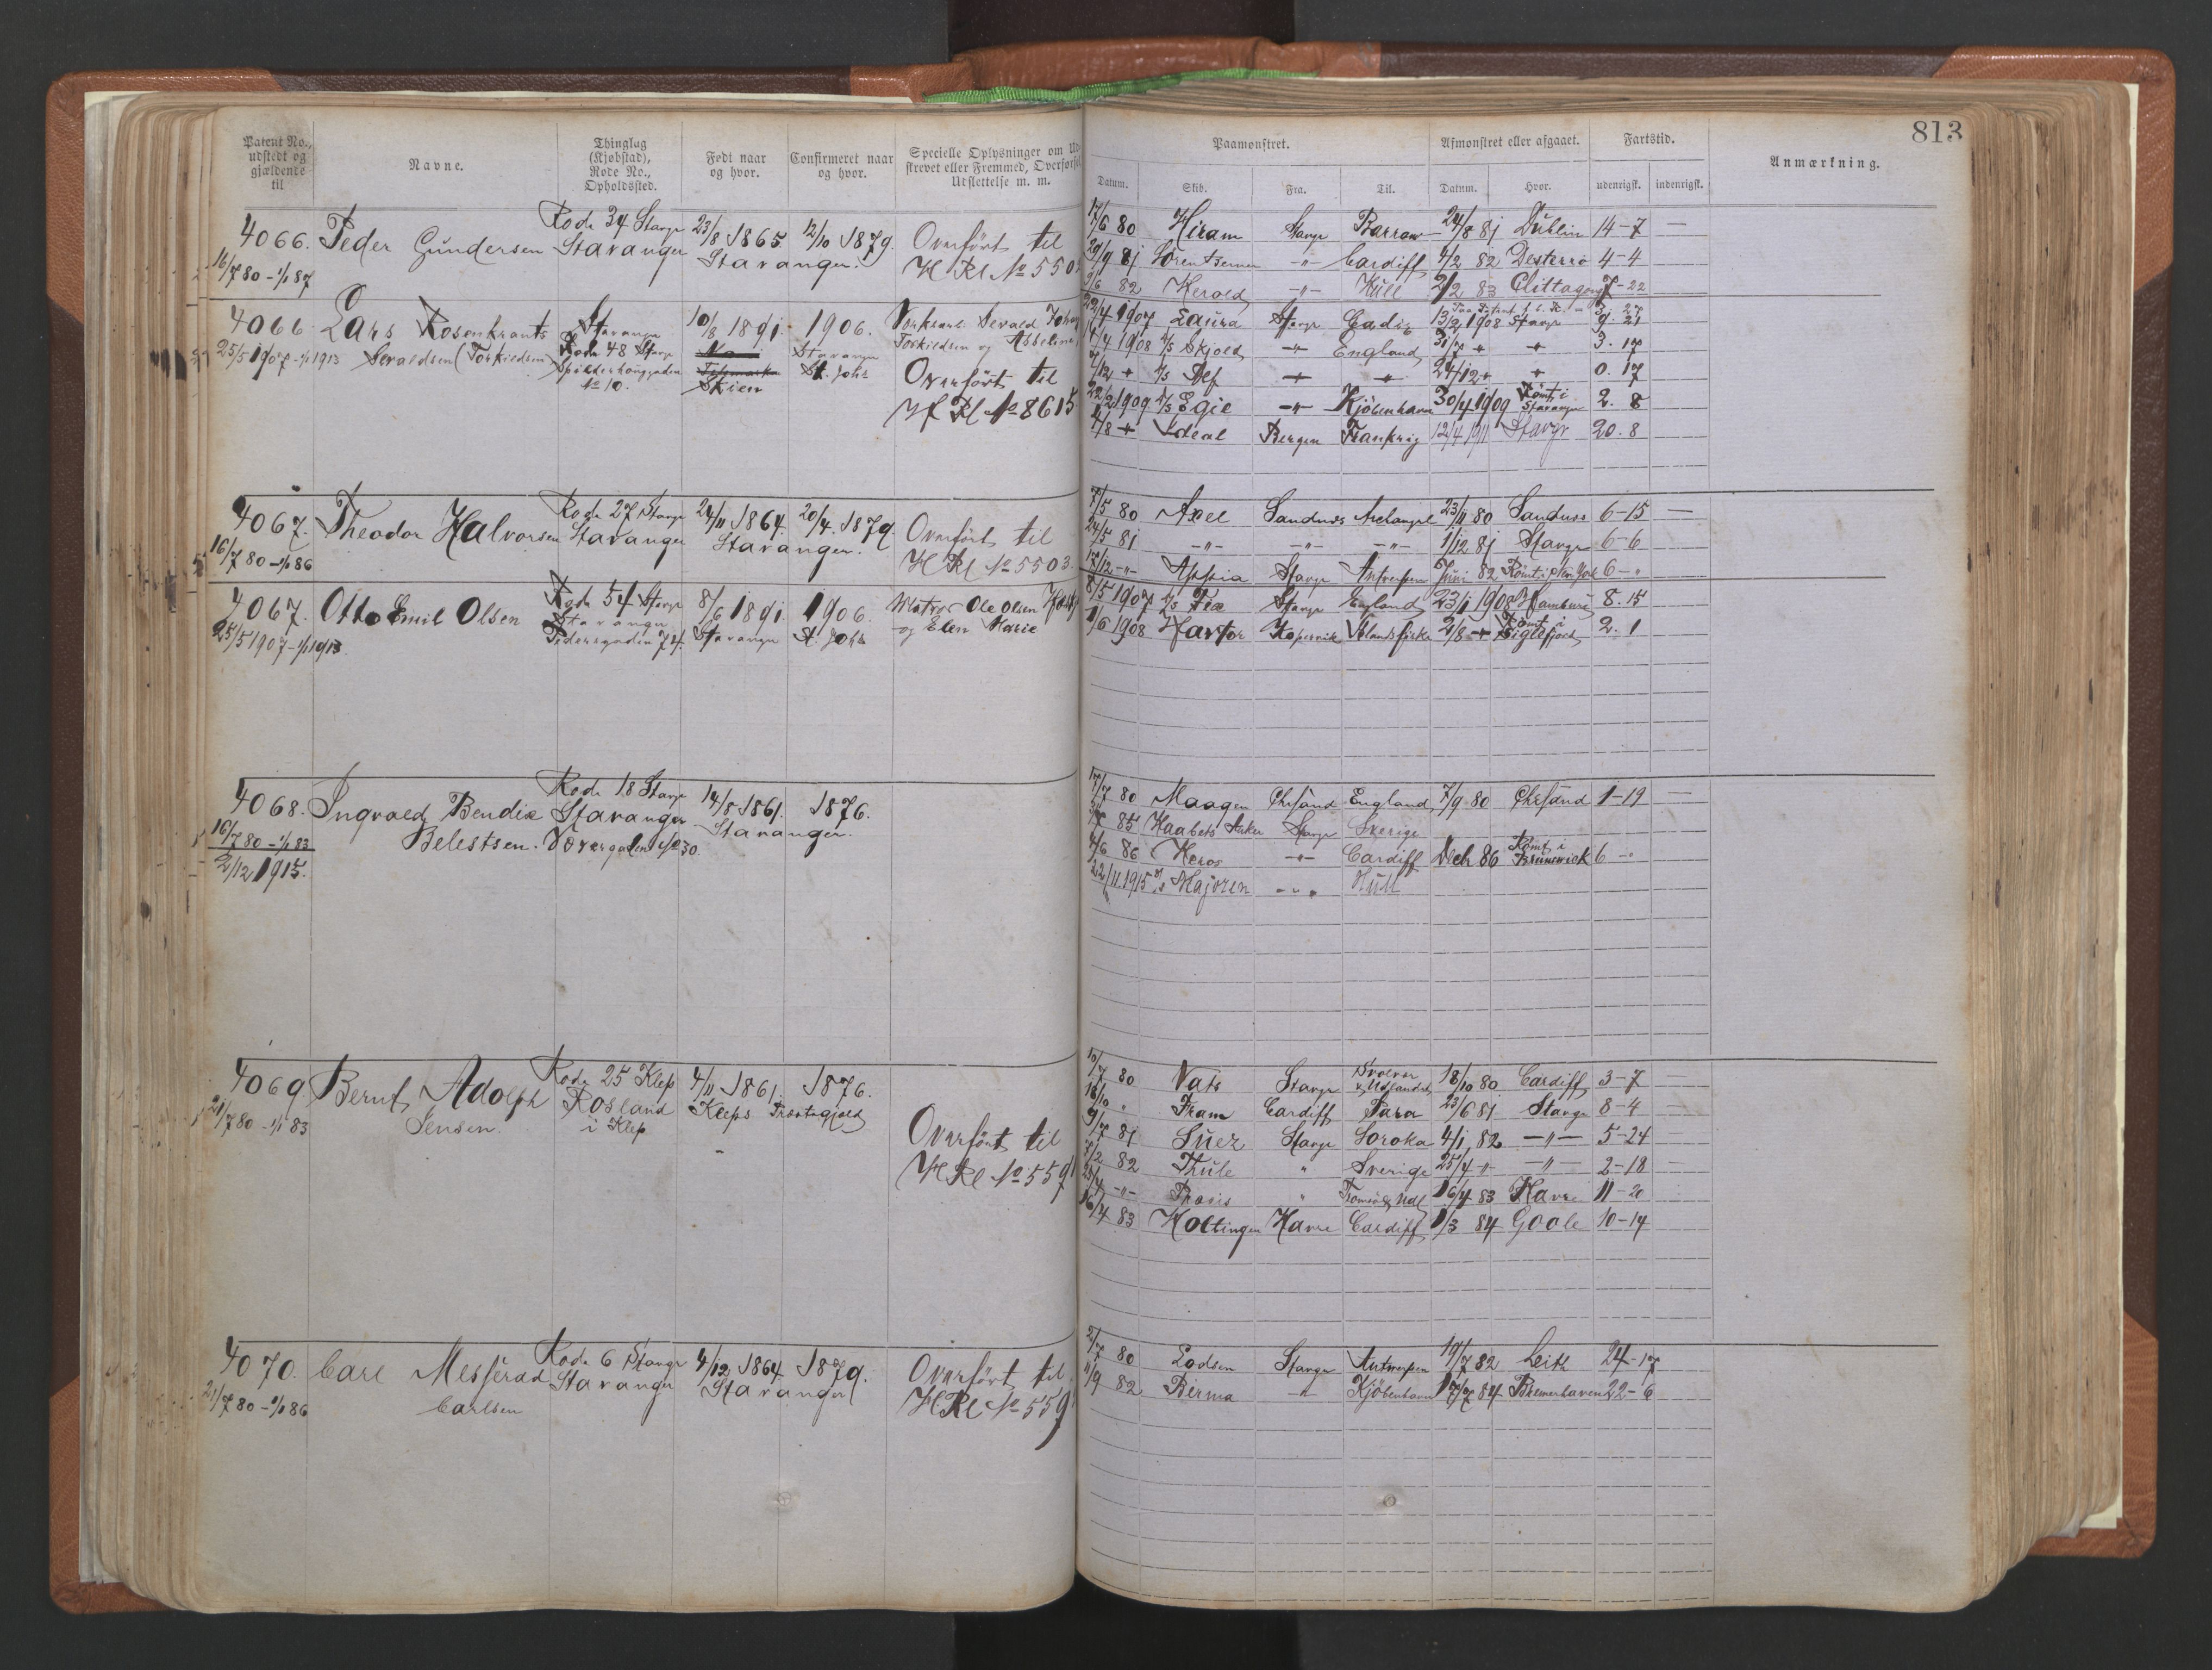 813
Patent No., udstedt og gjældende til
Navne.
Thinglag (Kjøbstad), Rode No., Opholdssted.
Født naar og hvor.
Confirmeret naar og hvor.
Specielle Oplysninger om Ud-
skrevet eller Fremmed, Overførsel
Udslettelse m. m.
Paamønstret.
Afmønstret eller afgaaet.
Fartstid.
Anmærkning.
Datum. Skib. Fra. Til. Datum. Hvor. udenrigsk. indenrigsk.
4066. Peder Gundersen
16/7 80 - 1/1 87
Rode 34 Stavgr
Stavanger
23/8 1865. 12/10 1879.
Stavanger.
Overført til
H Rl No 550
17/6 80 Hiram Stavgr Barrow 24/8 81 Dublin 14-7 —
29/9 81 -"- Cardiff 4/2 82 Desterro 4-4
3/6 82 Herold -"- Hull 2/2 83 Chittagong 7-22
4066. Lars Rosenkrants
25/5 1907 - 1/1 1913 Sevaldsen (Torkildsen)
Stavanger
Rode 48 Stavgr
No 10.
10/8 1891. 1906.
Stavanger St. Johs
Skien
Sevald Johan
Torkildsen og Abbeline
Overført til
H Rl No 8615
22/4 1907 Laura Stavgr Cadiz 13/2 1908 Stavgr 9. 21
1/4 1908 D/S Skjold -"- England 31/7 " " 3. 17
7/12 " D/S Alf " " 24/12 " " 0. 17
22/2 1909 D/S Egie -"- Kjöbenhavn 30/4 1909 Römt i Stavanger 2. 8
4/8 " Ideal Bergen Frankrig 12/4 1911 Stavgr 20. 8
4067. Theodor Halvorsen
16/7 80 - 1/1 86
Rode 27 Stavgr
Stavanger
24/11 1864. 20/4. 1879.
Stavanger.
Overført til
H Rl No 5503.
7/5 80 Axel Sandnæs Archangel 23/11 80 Sandnæs 6-15 —
24/5 81 -"- -"- -"- 1/12 81 Stavgr 6-6
17/12 -"- Appia Stavgr Antwerpen Juni 82 Römt i New York 6-"
4067. Otto Emil Olsen
25/5 1907 - 1/1 1913.
Rode 54 Stavgr
Stavanger
Pedersgaden 74.
8/6 1891. 1906.
Stavanger St Johs
Matros Ole Olsen
og Elen Marie
8/5 1907 D/S Fix Stavgr England 23/1 1908 Hamburg 8. 15
1/6 1908 Kopervik Islandsfiske 2/8 " Römt i Siglefjord 2. 1
4068. Ingvald Bendix
Belestsen.
16/7 80 - 1/1 83
2/12 1915.
Rode 18 Stavgr
Stavanger
14/8 1861. 1876.
Stavanger.
17/7 80 Maagen Chrsand England 7/9 80 Chrsand 1-19 —
85 Haabets Anker Stavgr Sverige
4/6 86 Heros -"- Cardiff Decbr 86 Römt i Brunswick 6 -"
22/11.1915 D/S Majoren -"- Hull
4069. Bernt Adolph
Jensen.
21/7 80 - 1/1 83
Rode 25 Klep
Rosland
i Klep
4/11 1861. 1876.
Kleps Præstegjeld
Overført til
H Rl No 559
10/7 80 Vats Stavgr Svolvær & Udlandet 18/10 80. Cardiff 3-7 —
18/10 " Fram Cardiff Para 23/6 81. Stavgr 8-4
9/7 81 Suez Stavgr Soroka 4/1 82 -"- 5-24
7/2 82 Thule " Sverige 25/4 " -"- 2-18
25/4 -"- " Tromsö & Udl 16/4 83 Havre 11-20
16/4 83 Holtingen Havre Cardiff 1/3 84 Goole 10-14
4070. Carl Messerød
Carlsen
21/7 80 - 1/1 86
Rode 6 Stavgr
Stavanger
4/12 1864 1879.
Stavanger
Overført til
H Rl No 559
2/7 80 Lodsen Stavgr Antwerpen 19/7 82 Leith 24-17
11/9 82 Birma -"- Kjöbenhavn 17/7 84 Bremerhaven 22-6